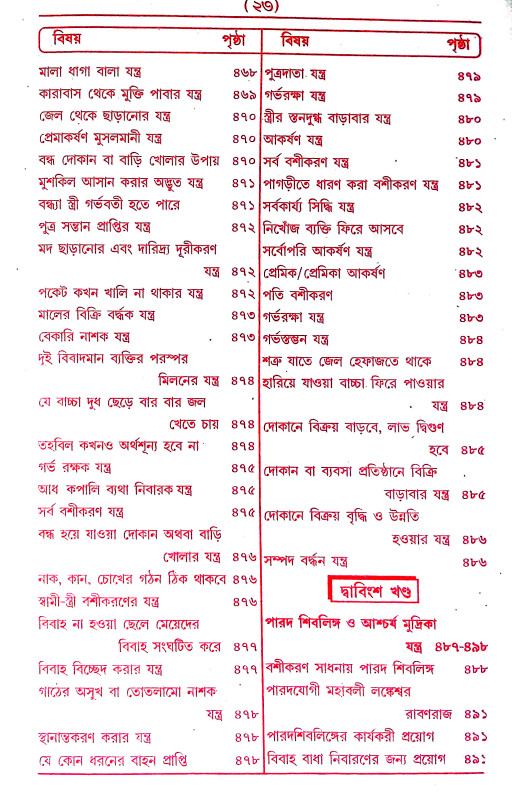 (২৩)
বিষয় পৃষ্ঠা
মালা ধাগা বালা যন্ত্র ৪৬৮
কারাবাস থেকে মুক্তি পাবার যন্ত্র ৪৬৯
জেল থেকে ছাড়ানোর যন্ত্র ৪৭০
প্রেমাকর্ষণ মুসলমানী যন্ত্র ৪৭০
বন্ধ দোকান বা বাড়ি খোলার উপায় ৪৭০
মুশকিল আসান করার অদ্ভুত যন্ত্র ৪৭১
বন্ধ্যা স্ত্রী গর্ভবতী হতে পারে ৪৭১
পুত্র সন্তান প্রাপ্তির যন্ত্র ৪৭২
মদ ছাড়ানোর এবং দারিদ্র্য দূরীকরণ
যন্ত্র ৪৭২
পকেট কখন খালি না থাকার যন্ত্র ৪৭২
মালের বিক্রি বর্দ্ধক যন্ত্র ৪৭৩
বেকারি নাশক যন্ত্র ৪৭৩
দুই বিবাদমান ব্যক্তির পরস্পর
মিলনের যন্ত্র ৪৭৪
যে বাচ্চা দুধ ছেড়ে বার বার জল
খেতে চায় ৪৭৪
তহবিল কখনও অর্থশূন্য হবে না ৪৭৪
গর্ভ রক্ষক যন্ত্র ৪৭৫
আধ কপালি ব্যথা নিবারক যন্ত্র ৪৭৫
সর্ব বশীকরণ যন্ত্র ৪৭৫
বন্ধ হয়ে যাওয়া দোকান অথবা বাড়ি
খোলার যন্ত্র ৪৭৬
নাক, কান, চোখের গঠন ঠিক থাকবে ৪৭৬
স্বামী-স্ত্রী বশীকরণের যন্ত্র ৪৭৬
বিবাহ না হওয়া ছেলে মেয়েদের
বিবাহ সংঘটিত করে ৪৭৭
বিবাহ বিচ্ছেদ করার যন্ত্র ৪৭৭
গাঠের অসুখ বা তোতলামো নাশক
যন্ত্র ৪৭৮
স্থানান্তকরণ করার যন্ত্র ৪৭৮
যে কোন ধরনের বাহন প্রাপ্তি ৪৭৮
বিষয় পৃষ্ঠা
পুত্রদাতা যন্ত্র ৪৭৯
গর্ভরক্ষা যন্ত্র ৪৭৯
স্ত্রীর স্তনদুগ্ধ বাড়াবার যন্ত্র ৪৮০
আকর্ষণ যন্ত্র ৪৮০
সর্ব বশীকরণ যন্ত্র ৪৮১
পাগড়ীতে ধারণ করা বশীকরণ যন্ত্র ৪৮১
সর্বকার্য্য সিদ্ধি যন্ত্র ৪৮২
নিখোঁজ ব্যক্তি ফিরে আসবে ৪৮২
সর্বোপরি আকর্ষণ যন্ত্র ৪৮২
প্রেমিক/প্রেমিকা আকর্ষণ ৪৮৩
পতি বশীকরণ ৪৮৩
গর্ভরক্ষা যন্ত্র ৪৮৩
গর্ভস্তম্ভন যন্ত্র ৪৮৪
শত্রু যাতে জেল হেফাজতে থাকে ৪৮৪
হারিয়ে যাওয়া বাচ্চা ফিরে পাওয়ার
যন্ত্র ৪৮৪
দোকানে বিক্রয় বাড়বে, লাভ দ্বিগুণ
হবে ৪৮৫
দোকান বা ব্যবসা প্রতিষ্ঠানে বিক্রি
বাড়াবার যন্ত্র ৪৮৫
দোকানে বিক্রয় বৃদ্ধি ও উন্নতি
হওয়ার যন্ত্র ৪৮৬
সম্পদ বর্দ্ধন যন্ত্র ৪৮৬
দ্বাবিংশ খণ্ড
পারদ শিবলিঙ্গ ও আশ্চর্য মুদ্রিকা
যন্ত্র ৪৮৭-৪৯৮
বশীকরণ সাধনায় পারদ শিবলিঙ্গ ৪৮৮
পারদযোগী মহাবলী লঙ্কেশ্বর
রাবণরাজ ৪৯১
পারদশিবলিঙ্গের কার্যকরী প্রয়োগ ৪৯১
বিবাহ বাধা নিবারণের জন্য প্রয়োগ ৪৯১